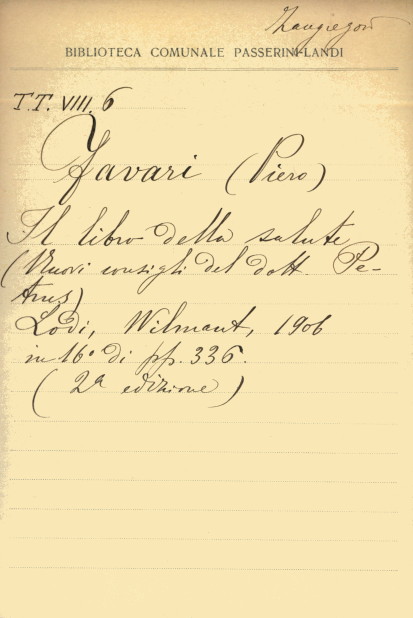 BIBLIOTECA COMUNALE PASSERINI-LANDI
T.T. VIII. 6
Favari (Piero)
Il libro della salute
(Nuovi consigli del dott. Pe-
trus)
Lodi, Wilmant, 1906
in 16° di pp. 336.
(2ª edizione)